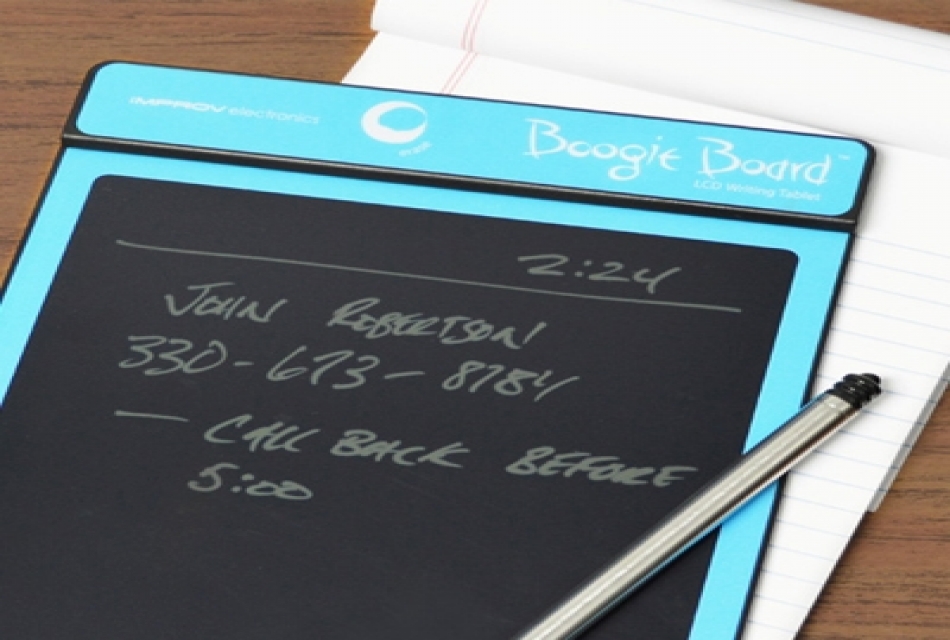 IMPROV electronics
erase
Boogie Board™
LCD Writing Tablet
2:24
JOHN ROBERTSON
330-673-8784
— CALL BACK BEFORE
5:00